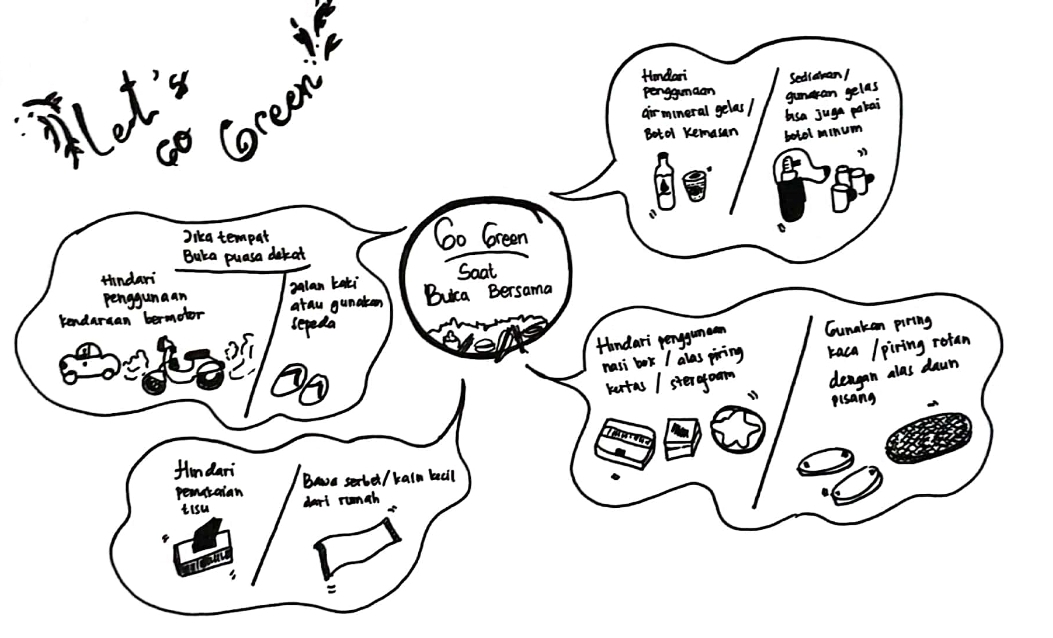 Let's
Go Green!
Go Green
Saat
Buka Bersama
Hindari
penggunaan
air mineral gelas/
Botol Kemasan
Sediakan/
gunakan gelas
bisa juga pakai
botol minum
Jika tempat
Buka puasa dekat
Hindari
penggunaan
kendaraan bermotor
Jalan kaki
atau gunakan
sepeda
Hindari penggunaan
nasi box / alas piring
kertas / sterofoam
Gunakan piring
kaca / piring rotan
dengan alas daun
pisang
Hindari
pemakaian
tisu
Bawa serbet/kain kecil
dari rumah